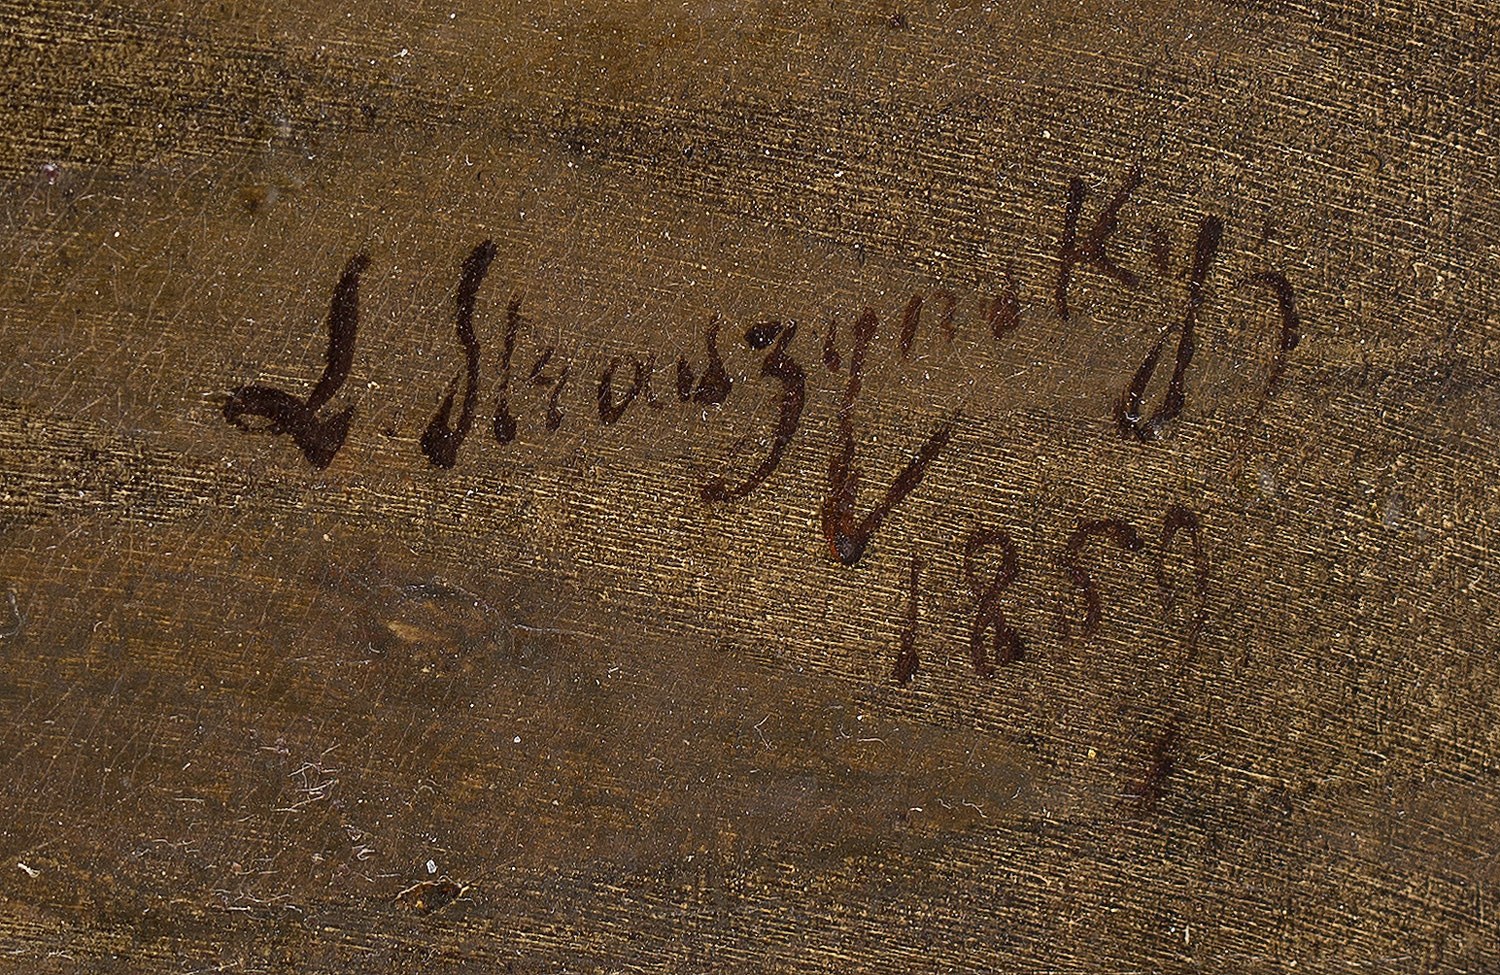 L. Straszynsky
1859